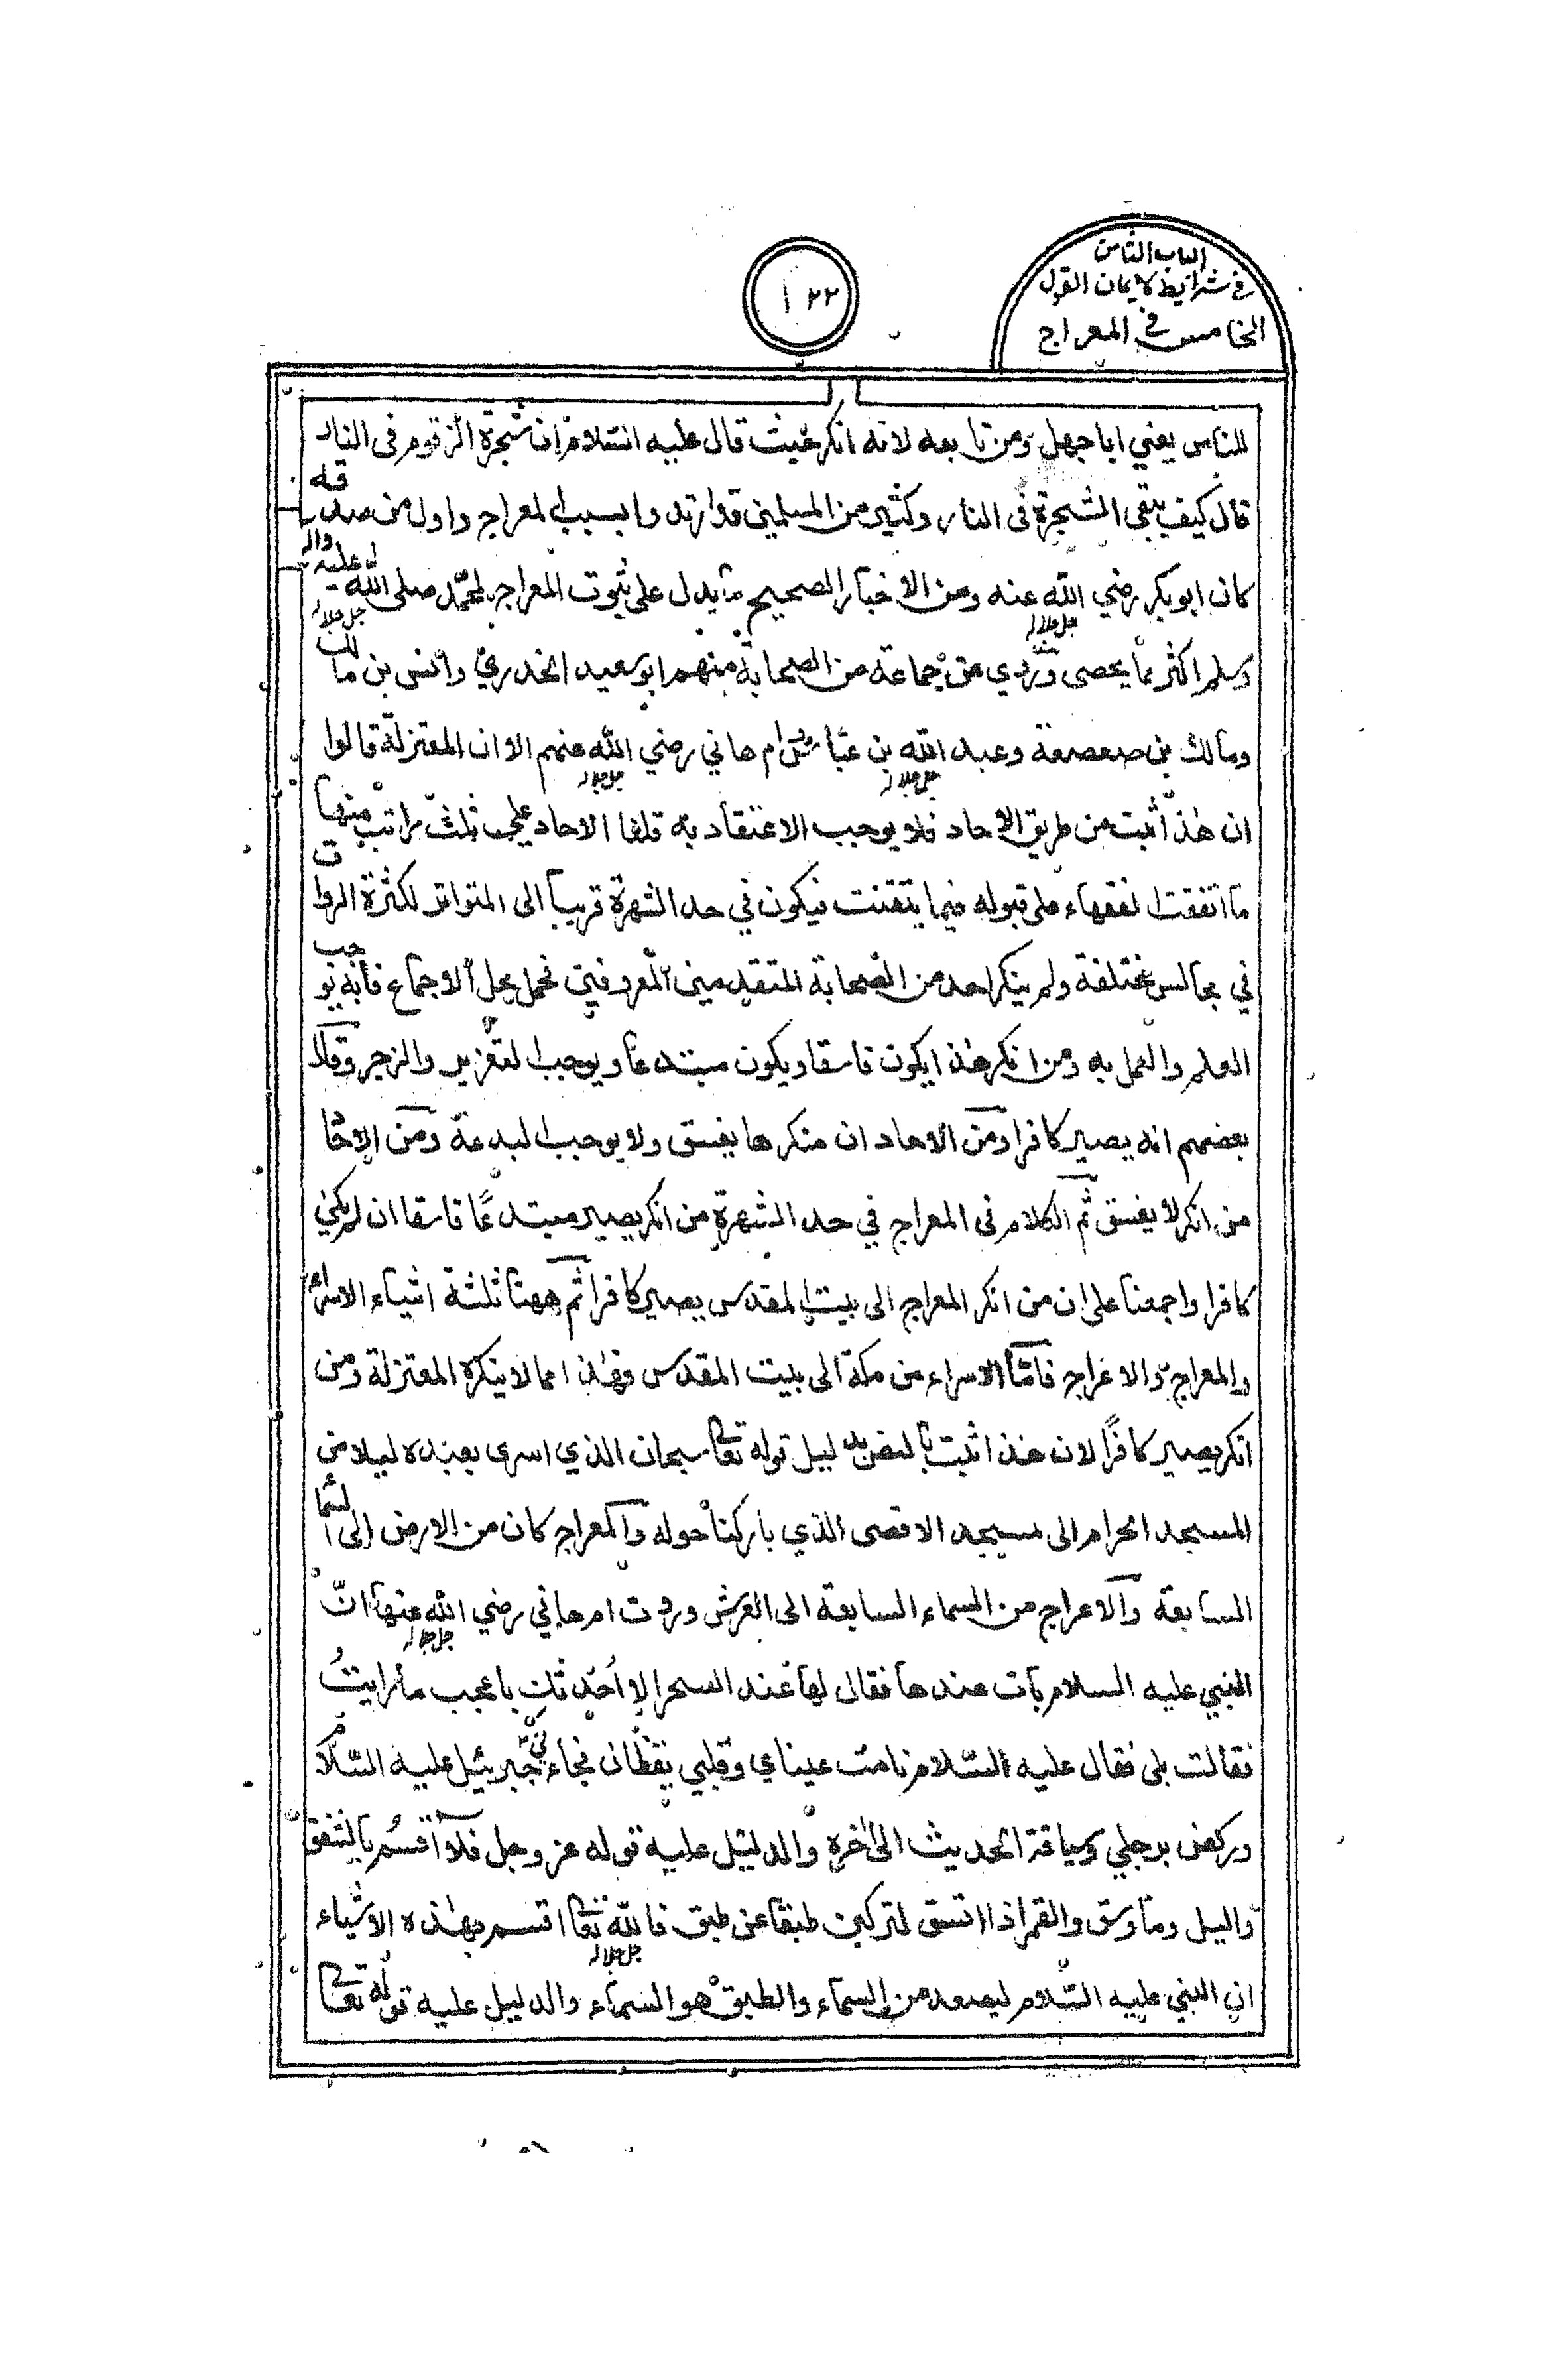 الباب الثامن
في شرايط الايمان القول
الخامس في المعراج
١٢٢
للناس يعني ابا جهل ومن تابعه لانه انكر حيث قال عليه السلام ان شجرة الزقوم في النار
قال كيف يبقى الشجرة في النار وكثير من المسلمين قد ارتدوا بسبب المعراج واول من صدقه
كان ابو بكر رضي الله عنه ومن الاخبار الصحيح ما يدل على ثبوت المعراج لمحمد صلى الله عليه واله
جل جلاله جل جلاله
وسلم اكثر مما يحصى وروي عن جماعة من الصحابة منهم ابو سعيد الخدري وانس بن مالك
ومالك بن صعصعة وعبد الله بن عباس وام هاني رضي الله عنهم الا ان المعتزلة قالوا
جل جلاله جل جلاله
ان هذا ثبت من طريق الاحاد فلا يوجب الاعتقاد به قلنا الاحاد على ثلث مراتب منها
ما اتفقت الفقهاء على قبوله فيكون في حد الشهرة قريبا الى المتواتر لكثرة الروات
في مجالس مختلفة ولم ينكر احد من الصحابة المتقدمين المعروفين فحمل محل الاجماع فانه يوجب
العلم والعمل به ومن انكر هذا يكون فاسقا ويكون مبتدعا ويوجب التعزير والزجر وقال
بعضهم انه يصير كافرا ومن الاحاد ان منكرها يفسق ولا يوجب البدعة ومن الاحا
من انكر لا يفسق ثم الكلام في المعراج في حد الشهرة من انكر يصير مبتدعا فاسقا ان لم يكن
كافرا واجمعنا على ان من انكر المعراج الى بيت المقدس يصير كافرا ثم ههنا ثلثة اشياء الاسراء
والمعراج والاعراج فاما الاسراء من مكة الى بيت المقدس فهذا مما لا ينكره المعتزلة ومن
انكر يصير كافرا لان هذا ثبت بالنص بدليل قوله تعا سبحان الذي اسرى بعبده ليلا من
المسجد الحرام الى مسجد الاقصى الذي باركنا حوله والمعراج كان من الارض الى السما
السابعة والاعراج من السماء السابعة الى العرش وروت ام هاني رضي الله عنها ان
جل جلاله
النبي عليه السلام بات عندها فقال لها عند السحر الا احدثك باعجب ما رايت
فقالت بلى فقال عليه السلام نامت عيناي وقلبي يقظان فجاءني جبرئيل عليه السلام
وركض برجلي وسياقة الحديث الى اخره والدليل عليه قوله عز وجل فلا اقسم بالشفق
واليل وما وسق والقمر اذا اتسق لتركبن طبقا عن طبق فالله تعا اقسم بهذه الاشياء
جل جلاله
ان النبي عليه السلام ليصعد من السماء والطبق هو السماء والدليل عليه قوله تعا